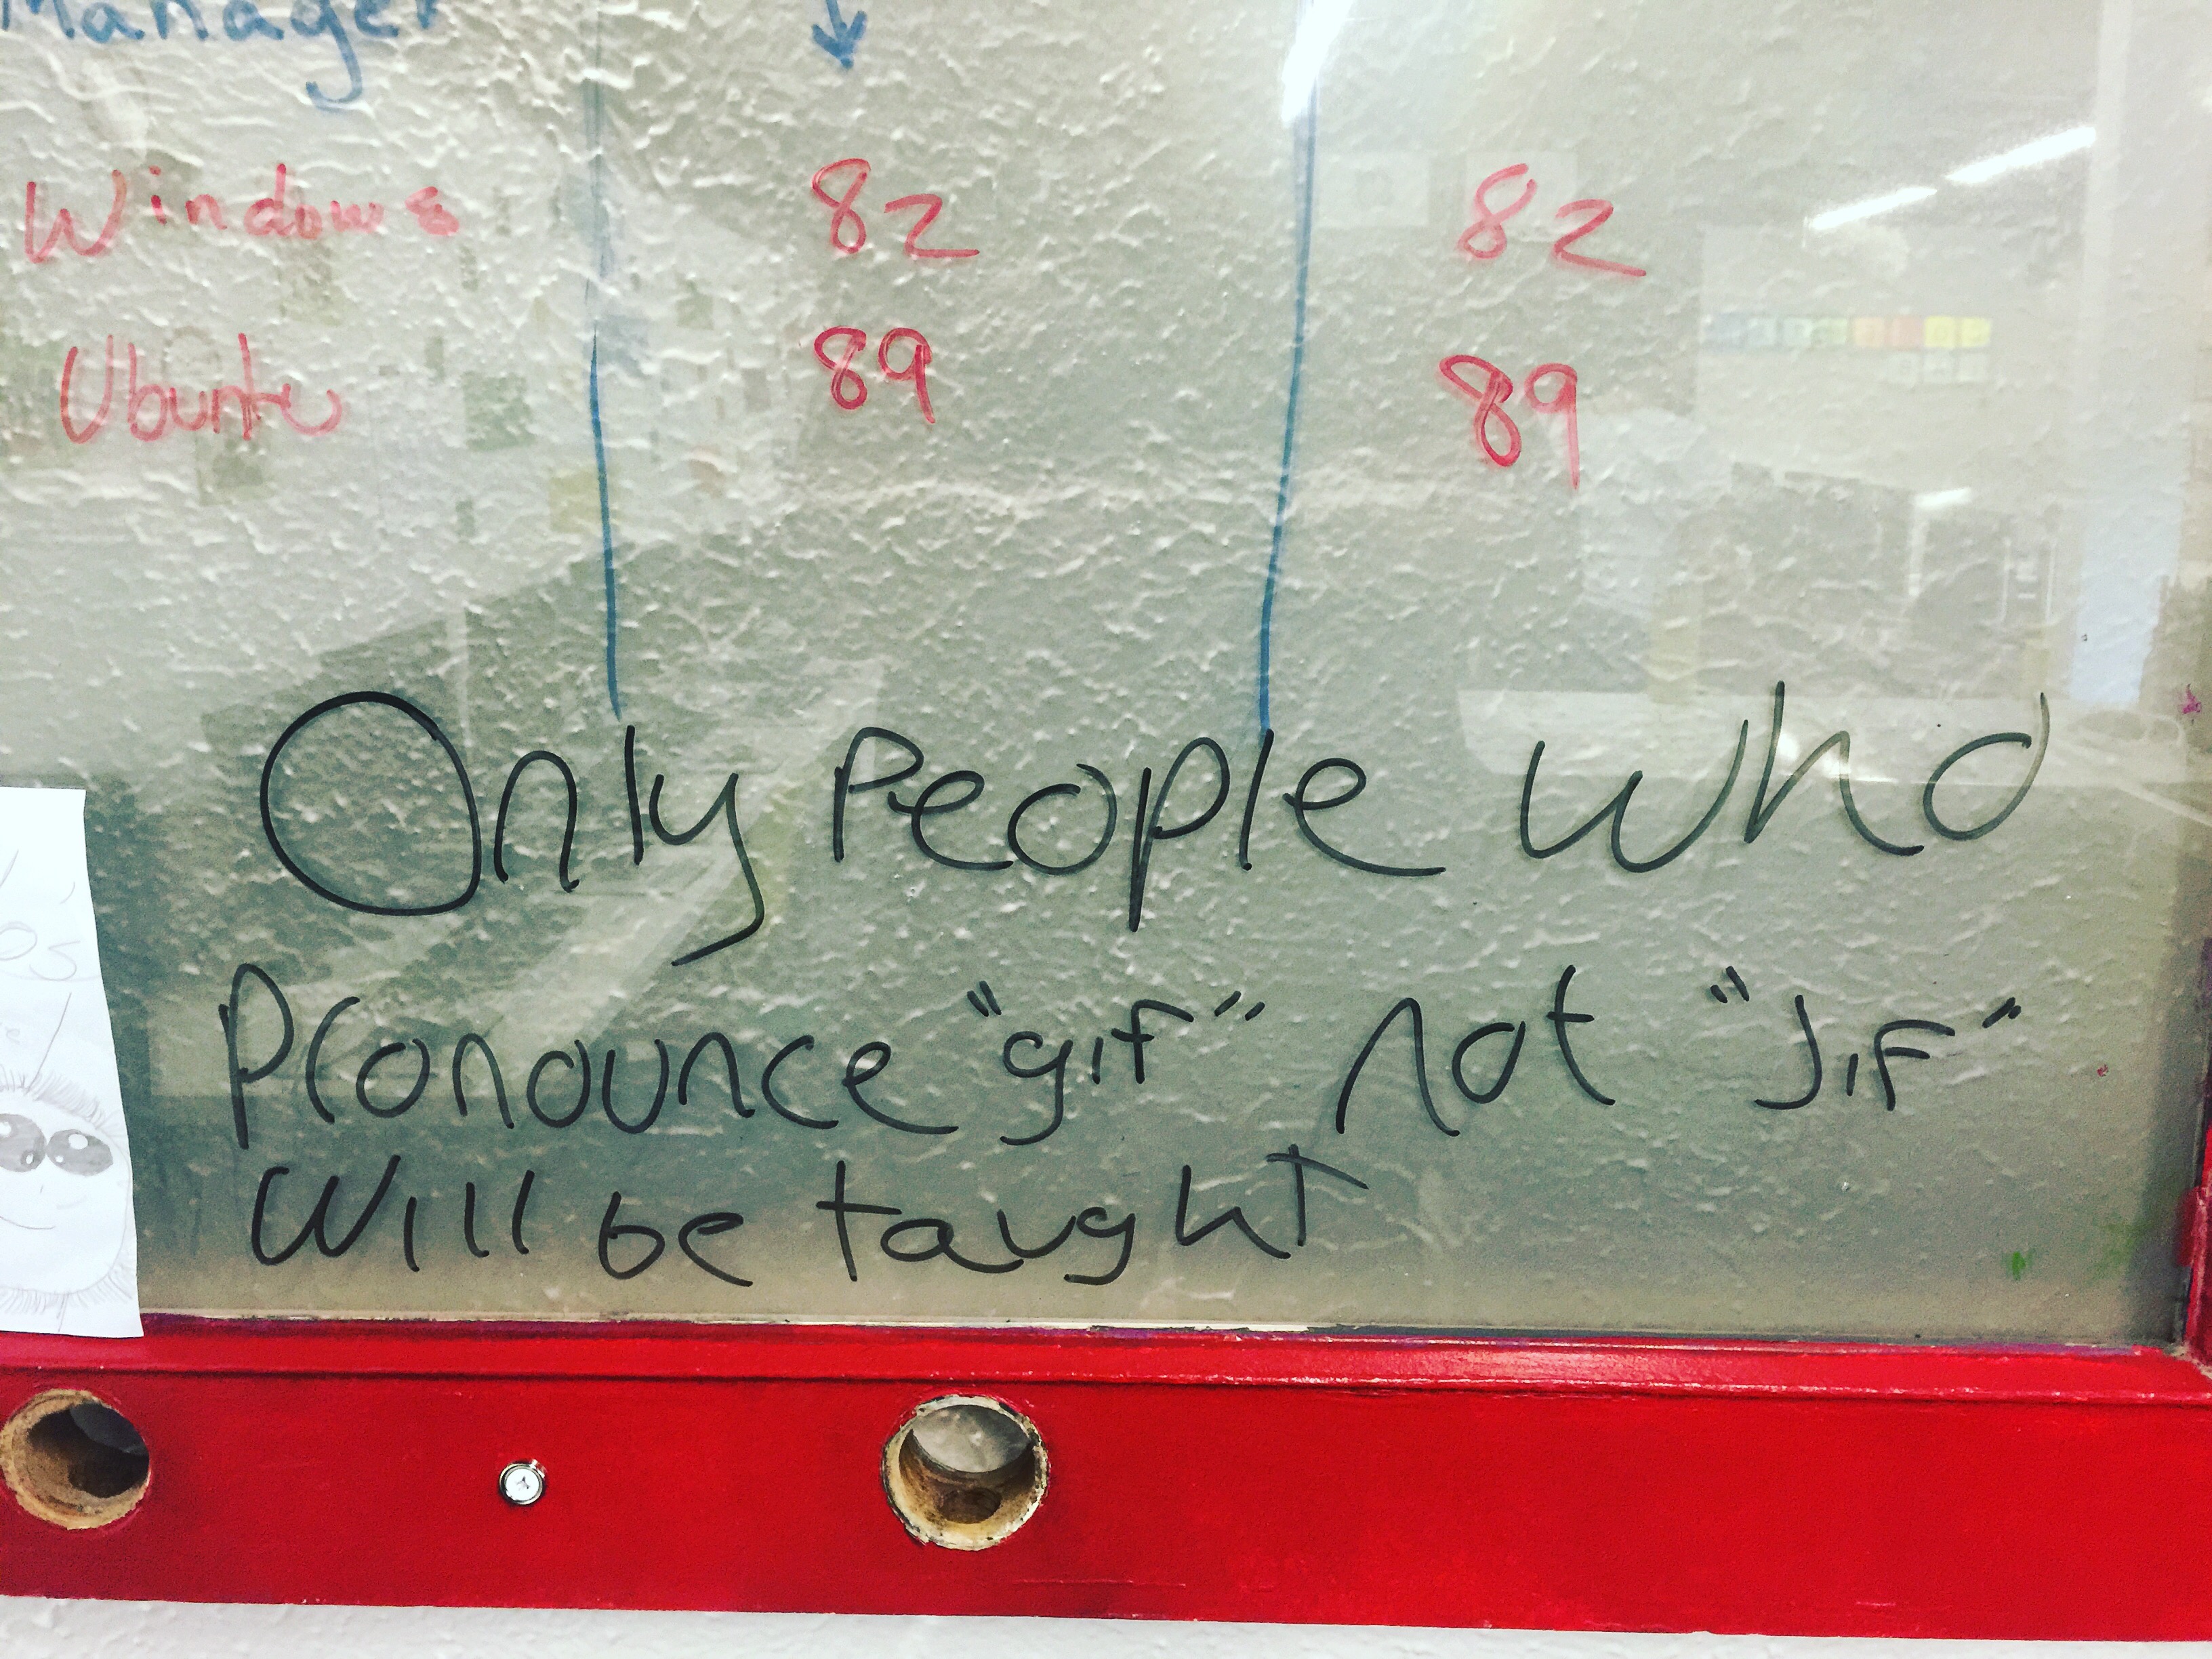 Manager
Windows 82 82
Ubuntu 89 89
Only People who
Pronounce "gif" not "Jif"
Will be taught